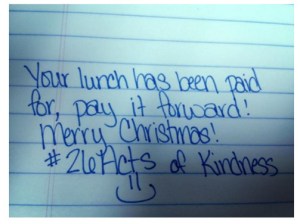 Your lunch has been paid
for, pay it forward!
Merry Christmas!
#26Acts of Kindness